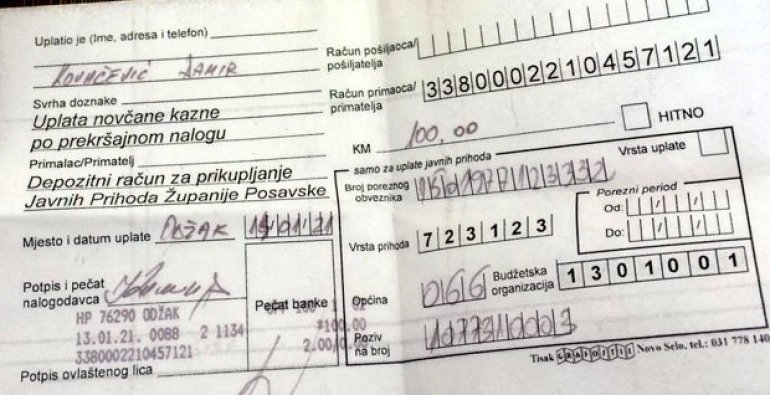 Uplatio je (Ime, adresa i telefon)
KOVAČEVIĆ DAMIR
Svrha doznake
Uplata novčane kazne
po prekršajnom nalogu
Primalac/Primatelj
Depozitni račun za prikupljanje
Javnih Prihoda Županije Posavske
Mjesto i datum uplate ODŽAK 13/01/21
Potpis i pečat
nalogodavca
Pečat banke
HP 76290 ODŽAK
13.01.21. 0088 2 1134 *100.00
3380002210457121 2.00/0.00
Potpis ovlaštenog lica
Račun pošiljaoca/
pošiljatelja
Račun primaoca/
primatelja
3380002210457121
KM 100,00
HITNO
samo za uplate javnih prihoda
Vrsta uplate
Broj poreznog
obveznika
Porezni period
Od:
Do:
Vrsta prihoda 723123
Općina 066
Budžetska
organizacija
1301001
Poziv
na broj
Tisak GRAFOTIS Novo Selo, tel.: 031 778 140